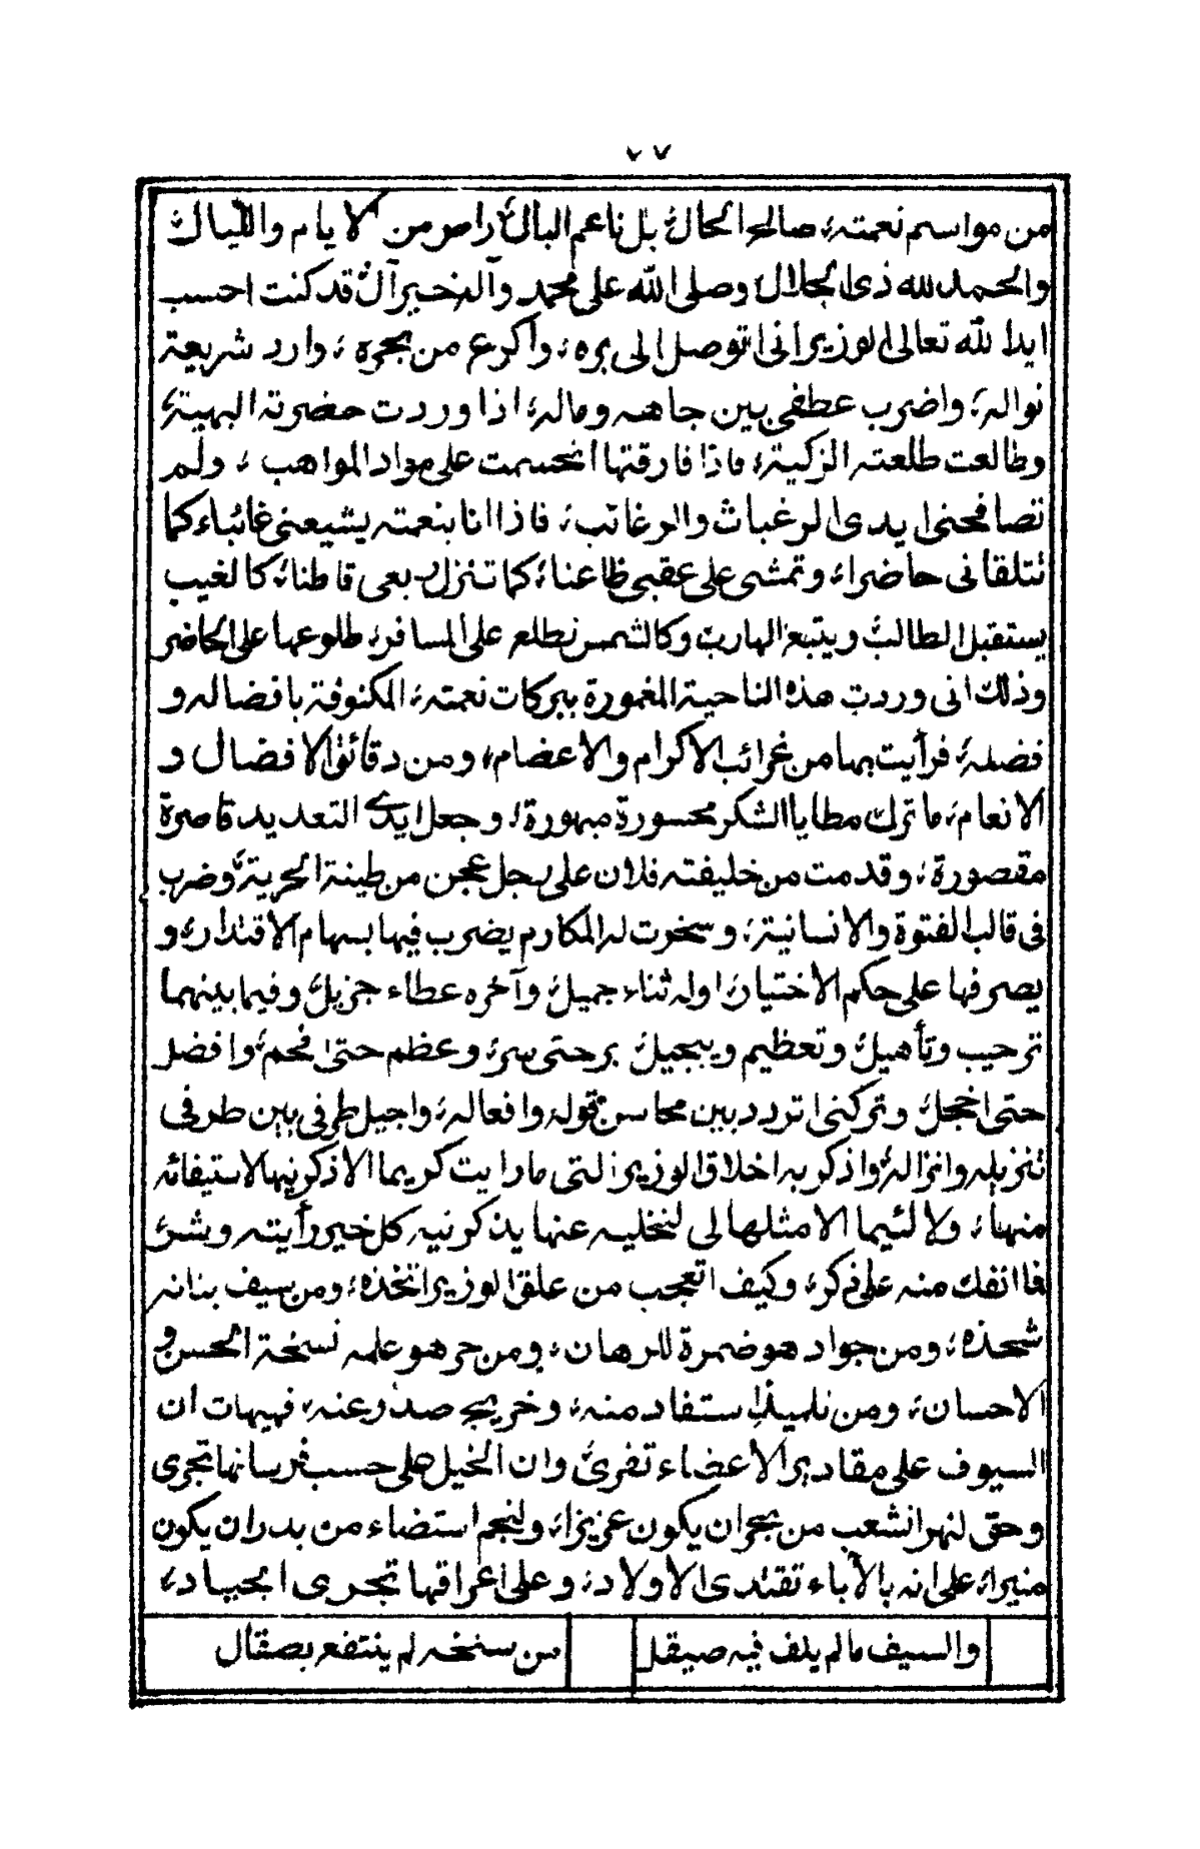 ٧٧
من مواسم نعمته، صالح الحال، بل ناعم البال، راض من الايام والليال،
والحمد لله ذى الجلال، وصلى الله على محمد وآله خير آل، قد كنت احسب
ايد الله تعالى الوزير انى اتوصل الى بره، واكرع من بحره، وارد شريعة
نواله، واضرب عطفى بين جاهه وماله، اذا وردت حضرته البهية،
وطالعت طلعته الزكية، فاذا فارقتها انحسمت على مواد المواهب، ولم
تصافحنى ايدى الرغبات والرغائب، فاذا انا بنعمته يشيعنى غائباء كما
تتلقانى حاضرا، وتمشى على عقبى ظاعنا، كما تنزل ربعى قاطنا، كالغيب
يستقبل الطالب، ويتبع الهارب، وكالشمس تطلع على المسافر، طلوعها على الحاضر
وذلك انى وردت هذه الناحية المغمورة ببركات نعمته، المكنوفة بافضاله و
فضله، فرأيت بها من غرائب الاكرام والاعضام، ومن دقائق الافضال و
الانعام، ما ترك مطايا الشكر محسورة مبهورة، وجعل ايدى التعديد قاصرة
مقصورة، وقدمت من خليفته فلان على رجل عجن من طينة الحرية، وضرب
فى قالب الفتوة والانسانية، وسخرت له المكارم يضرب فيها بسهام الاقتدار، و
يصرفها على حكم الاختيار، اوله ثناء جميل، وآخره عطاء جزيل، وفيما بينهما
ترحيب وتأهيل، وتعظيم وتبجيل، برحتى سر، وعظم حتى فخم، وافضل
حتى اخجل، وتركنى اتردد بين محاسن قوله وافعاله، واجيل طرفى بين طرفى
تنزيله وانزاله، واذكر به اخلاق الوزير التى مارايت كريما الا ذكرنيها لاستيفائه
منها، ولا لئيما الا مثلها لى لتخليه عنها يذكرنيه كل خير رأيته وشر،
فما انفك منه على ذكر، وكيف اتعجب من علق الوزير اتخذه، ومن سيف بنانه
شحذه، ومن جواد هو ضمرة للرهان، ومن حر هو علمه نسخة الحسن و
الاحسان، ومن تلميذ استفاد منه، وخريج صدر عنه، فهيهات ان
السيوف على مقادير الاعضاء تفرى، وان الخيل على حسب فرسانها تجرى
وحق لنهر انشعب من بحر ان يكون عزيزا، ولنجم استضاء من بدر ان يكون
منيرا، على انه بالآباء تقتدى الاولاد، وعلى اعراقها تجرى الجياد،
والسيف ما لم يلف فيه صيقل من سنخه لم ينتفع بصقال